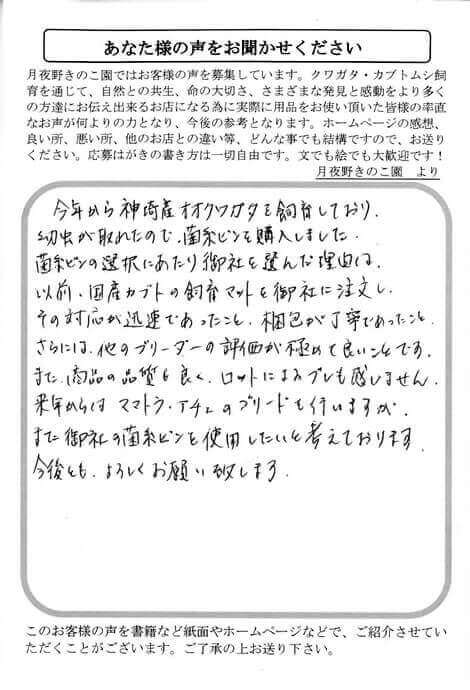 あなた様の声をお聞かせください
月夜野きのこ園ではお客様の声を募集しています。クワガタ・カブトムシ飼
育を通じて、自然との共生、命の大切さ、さまざまな発見と感動をより多く
の方達にお伝え出来るお店になる為に実際に用品をお使い頂いた皆様の率直
なお声が何よりの力となり、今後の参考となります。ホームページの感想、
良い所、悪い所、他のお店との違い等、どんな事でも結構ですので、お送り
ください。応募はがきの書き方は一切自由です。文でも絵でも大歓迎です！
月夜野きのこ園 より
今年から神崎産オオクワガタを飼育しており、
幼虫が取れたので、菌糸ビンを購入しました。
菌糸ビンの選択にあたり御社を選んだ理由は、
以前、国産カブトの飼育マットを御社に注文し、
その対応が迅速であったこと、梱包が丁寧であったこと、
さらには、他のブリーダーの評価が極めて良いことです。
また、商品の品質も良く、ロットによるブレも感じません。
来年からは ママトラ・アチェのブリードも行いますが、
また御社の菌糸ビンを使用したいと考えております。
今後とも、よろしくお願い致します。
このお客様の声を書籍など紙面やホームページなどで、ご紹介させてい
ただくことがございます。ご了承の上お送り下さい。